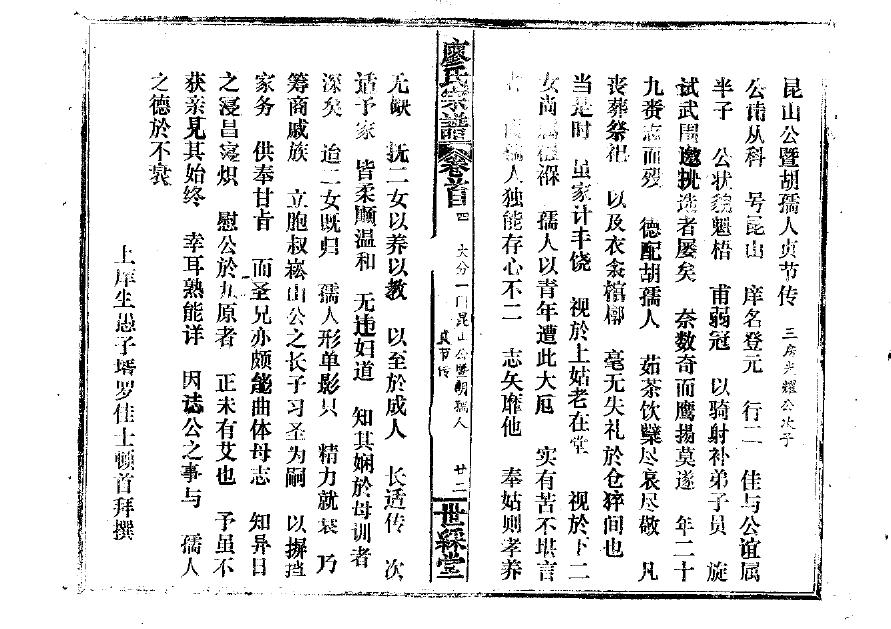 昆山公暨胡孺人贞节传 三房光耀公次子
公讳从科 号昆山 庠名登元 行二 佳与公谊属
半子 公状貌魁梧 甫弱冠 以骑射补弟子员 旋
试武闱邀挑选者屡矣 奈数奇而鹰扬莫遂 年二十
九赍志而殁 德配胡孺人 茹茶饮櫱尽哀尽敬 凡
丧葬祭祀 以及衣衾棺槨 毫无失礼於仓猝间也
当是时 虽家计丰饶 视於上姑老在堂 视於下二
女尚 襁褓 孺人以青年遭此大厄 实有苦不堪言
者 孺人独能存心不二 志矢靡他 奉姑则孝养
廖氏宗譜 卷首 四 大分一門昆山公暨胡孺人贞节传 廿二 世綵堂
无缺 抚二女以养以教 以至於成人 长适传 次
适予家 皆柔顺温和 无违妇道 知其娴於母训者
深矣 迨二女既归 孺人形单影只 精力就衰 乃
筹商戚族 立胞叔崧山公之长子习圣为嗣 以摒挡
家务 供奉甘旨 而圣兄亦颇能曲体母志 知异日
之寖昌寖炽 慰公於九原者 正未有艾也 予虽不
获亲见其始终 幸耳熟能详 因誌公之事与 孺人
之德於不衰
上庠生愚子壻罗佳士顿首拜撰